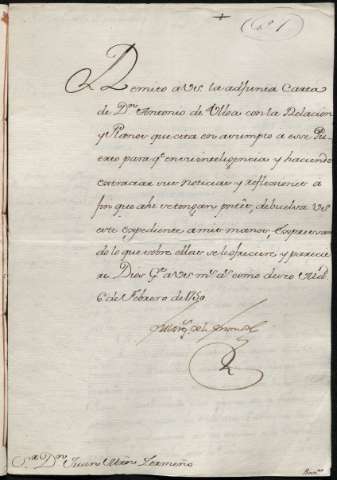 Nº 1
Remito a VS la adjunta Carta
de Dn. Antonio de Ulloa con la Relacion
y Planos que cita en asumpto a esse Pu-
erto para qe en su inteligencia y haciendo
sus noticias y reflexiones a
fin que ahi se tengan debuelva VS
este expediente a mis manos, Expresan
do lo que sobre ellas se le ofreciere y pareciere
Dios Ge. a VS ms. as. como deseo
6 de Febrero de
Sor. Dn. Juan Martin Zermeño